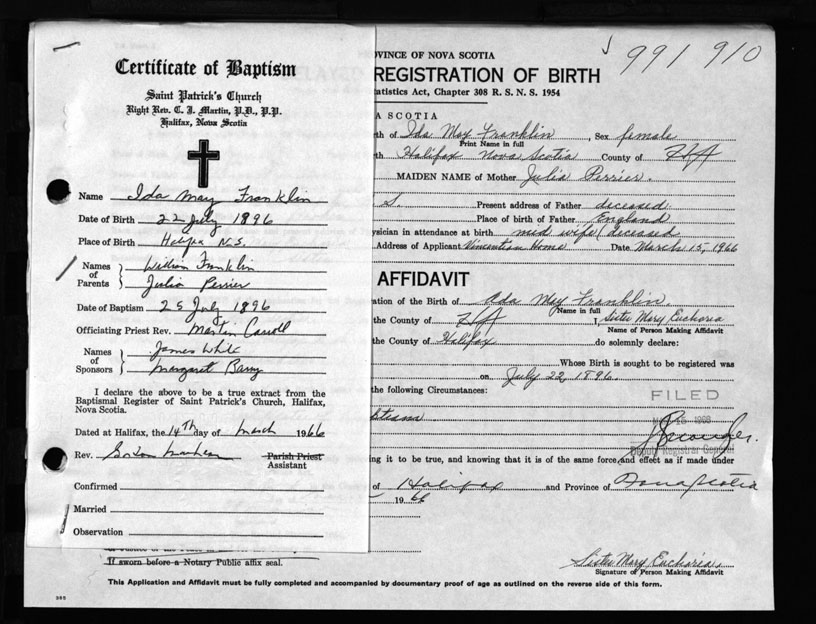 Certificate of Baptism
Saint Patrick's Church
Right Rev. C. J. Martin, P.D., P.P.
Halifax, Nova Scotia
Name Ida May Franklin
Date of Birth 22 July 1896
Place of Birth Halifax N.S.
Names of Parents } William Franklin
Julia Perrier
Date of Baptism 25 July 1896
Officiating Priest Rev. Martin Carroll
Names of Sponsors } James White
Margaret Barry
I declare the above to be a true extract from the
Baptismal Register of Saint Patrick's Church, Halifax,
Nova Scotia.
Dated at Halifax, the 14th day of March 1966
Rev. Parish Priest
Assistant
Confirmed
Married
Observation
991 910
OVINCE OF NOVA SCOTIA
REGISTRATION OF BIRTH
tatistics Act, Chapter 308 R. S. N. S. 1954
A SCOTIA
th of Ida May Franklin, Sex female
Print Name in full
th Halifax Nova Scotia County of Hfx
MAIDEN NAME of Mother Julia Perrier.
S. Present address of Father deceased
Place of birth of Father England
ysician in attendance at birth mid wife/deceased
Address of Applicant Vincentian Home Date March 15, 1966
AFFIDAVIT
ation of the Birth of Ada May Franklin.
Name in full
the County of Hfx I, Sister Mary Eucharia
Name of Person Making Affidavit
the County of Halifax do solemnly declare:
Whose Birth is sought to be registered was
on July 22, 1896.
the following Circumstances:
FILED
Deputy Registrar General
ing it to be true, and knowing that it is of the same force and effect as if made under
of Halifax and Province of Nova Scotia
1966
If sworn before a Notary Public affix seal.
Sister Mary Eucharia.
Signature of Person Making Affidavit
This Application and Affidavit must be fully completed and accompanied by documentary proof of age as outlined on the reverse side of this form.